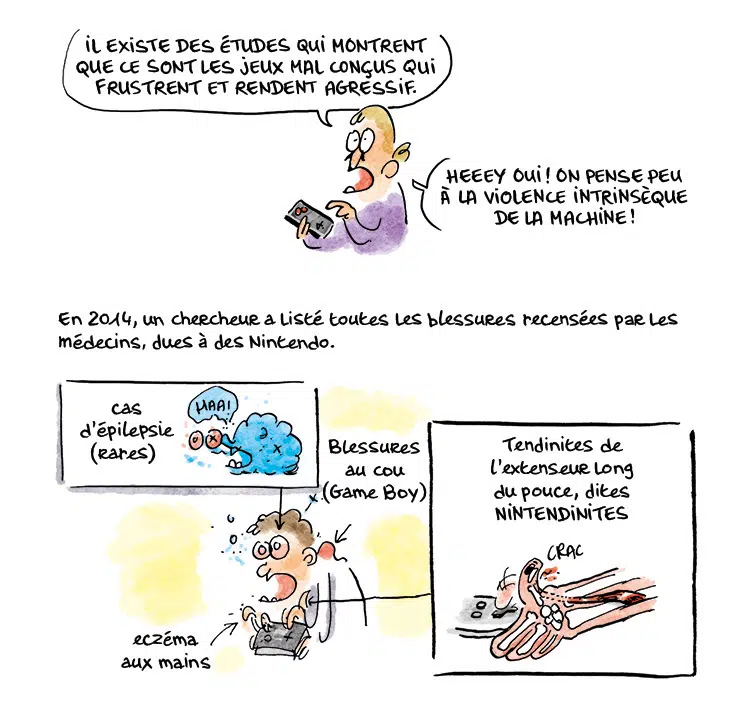 IL EXISTE DES ÉTUDES QUI MONTRENT
QUE CE SONT LES JEUX MAL CONÇUS QUI
FRUSTRENT ET RENDENT AGRESSIF.
HEEEY OUI ! ON PENSE PEU
À LA VIOLENCE INTRINSÈQUE
DE LA MACHINE !
En 2014, un chercheur a listé toutes les blessures recensées par les
médecins, dues à des Nintendo.
cas
d'épilepsie
(rares)
HAA!
Blessures
au cou
(Game Boy)
Tendinites de
l'extenseur long
du pouce, dites
NINTENDINITES
CRAC
eczéma
aux mains